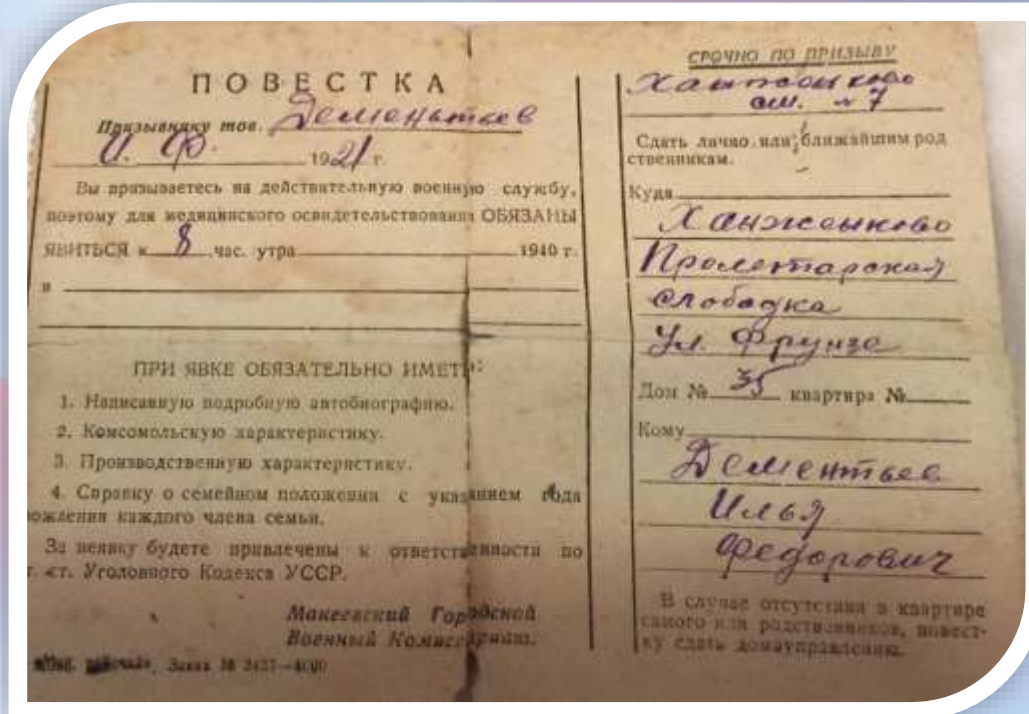 ПОВЕСТКА
Призывнику тов. Дементьев
И. Ф. 1921 г.
Вы призываетесь на действительную военную службу,
поэтому для медицинского освидетельствования ОБЯЗАНЫ
ЯВИТЬСЯ к 8 час. утра 1940 г.
в
ПРИ ЯВКЕ ОБЯЗАТЕЛЬНО ИМЕТЬ:
1. Написанную подробную автобиографию.
2. Комсомольскую характеристику.
3. Производственную характеристику.
4. Справку о семейном положении с указанием года
рождения каждого члена семьи.
За неявку будете привлечены к ответственности по
ст. Уголовного Кодекса УССР.
Макеевский Городской
Военный Комиссариат.
Заказ № 3427—4000
СРОЧНО ПО ПРИЗЫВУ
Ханжонково
№ 7
Сдать лично или ближайшим род
ственникам.
Куда
Ханженково
Пролетарская
слободка
Ул. Фрунзе
Дом № 35 квартира №
Кому
Дементьев
Илья
Федорович
В случае отсутствия в квартире
самого или родственников, повест-
ку сдать домоуправлению.